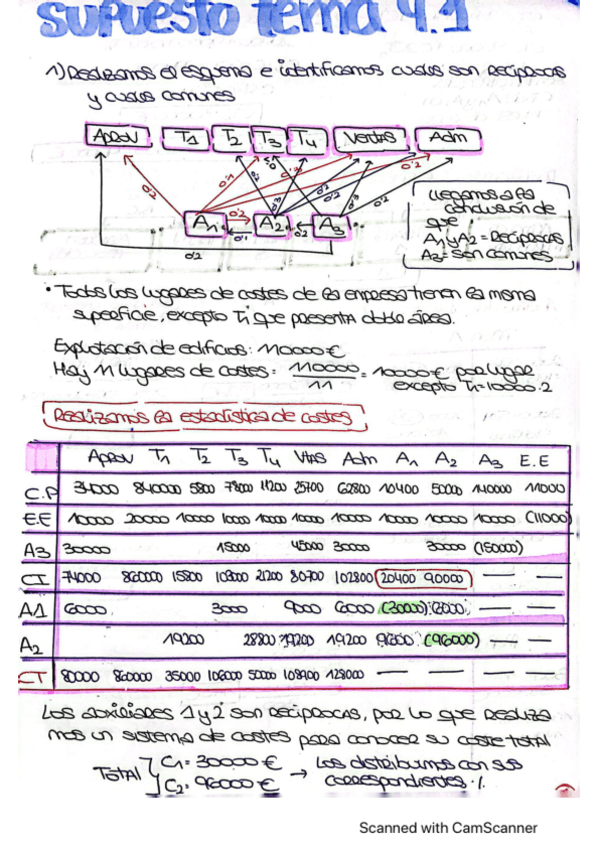 supuesto tema 4.1
1) Realizamos el esquema e identificamos cuales son recíprocas
y cuales comunes
Aprov T1 T2 T3 T4 Ventas Adm
0'2 0'1 0'2 0'3 0'2 0'2 0'3 0'2 0'2
A1 0'2 A2 A3
0'1 0'2
0'2
Llegamos a la
conclusión de
que
A1 y A2 = Recíprocas
A3 = son comunes
• Todos los lugares de costes de la empresa tienen la misma
superficie, excepto T1 que presenta doble área.
Explotación de edificios: 110000 €
Hay 11 lugares de costes = 110000 / 11 = 10000 € por lugar
excepto T1 = 10000·2
Realizamos la estadística de costes
Aprov T1 T2 T3 T4 Vtas Adm A1 A2 A3 E.E
C.P 34000 840000 5800 78000 11200 25700 62800 10400 50000 140000 11000
E.E 10000 20000 10000 10000 10000 10000 10000 10000 10000 10000 (11000)
A3 30000 15000 45000 30000 30000 (150000)
CI 74000 860000 15800 103000 21200 80700 102800 20400 90000 — —
A1 6000 3000 9000 6000 (30000) 6000 — —
A2 19200 28800 19200 19200 9600 (96000) — —
CT 80000 860000 35000 106000 50000 108900 128000 — — — —
Los auxiliares 1 y 2 son recíprocas, por lo que realiza
mos un sistema de costes para conocer su coste total
TOTAL { C1 = 30000 €
C2 = 96000 € → Los distribuimos con sus
correspondientes %
Scanned with CamScanner